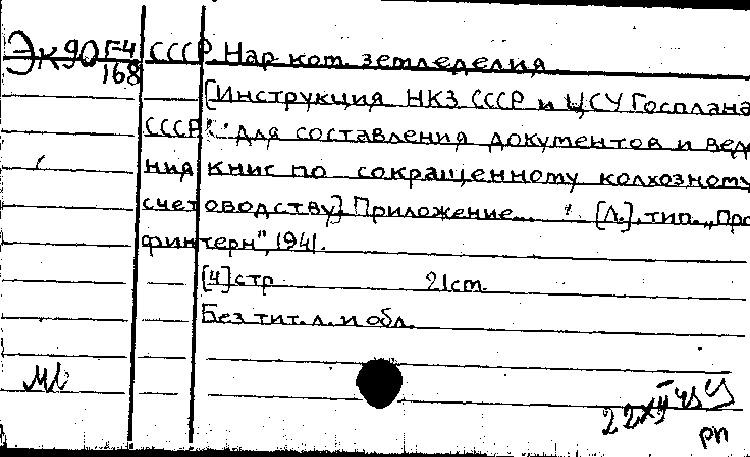 Эк90 Г-4/168 СССР. Нар ком. земледелия
[Инструкция НКЗ СССР и ЦСУ Госплана
СССР для составления документов и веде
ния книг по сокращенному колхозному
счетоводству]. Приложение... [Л.], тип. „Про
финтерн", 1941.
[4] стр 21 cm.
Без тит. л. и обл.